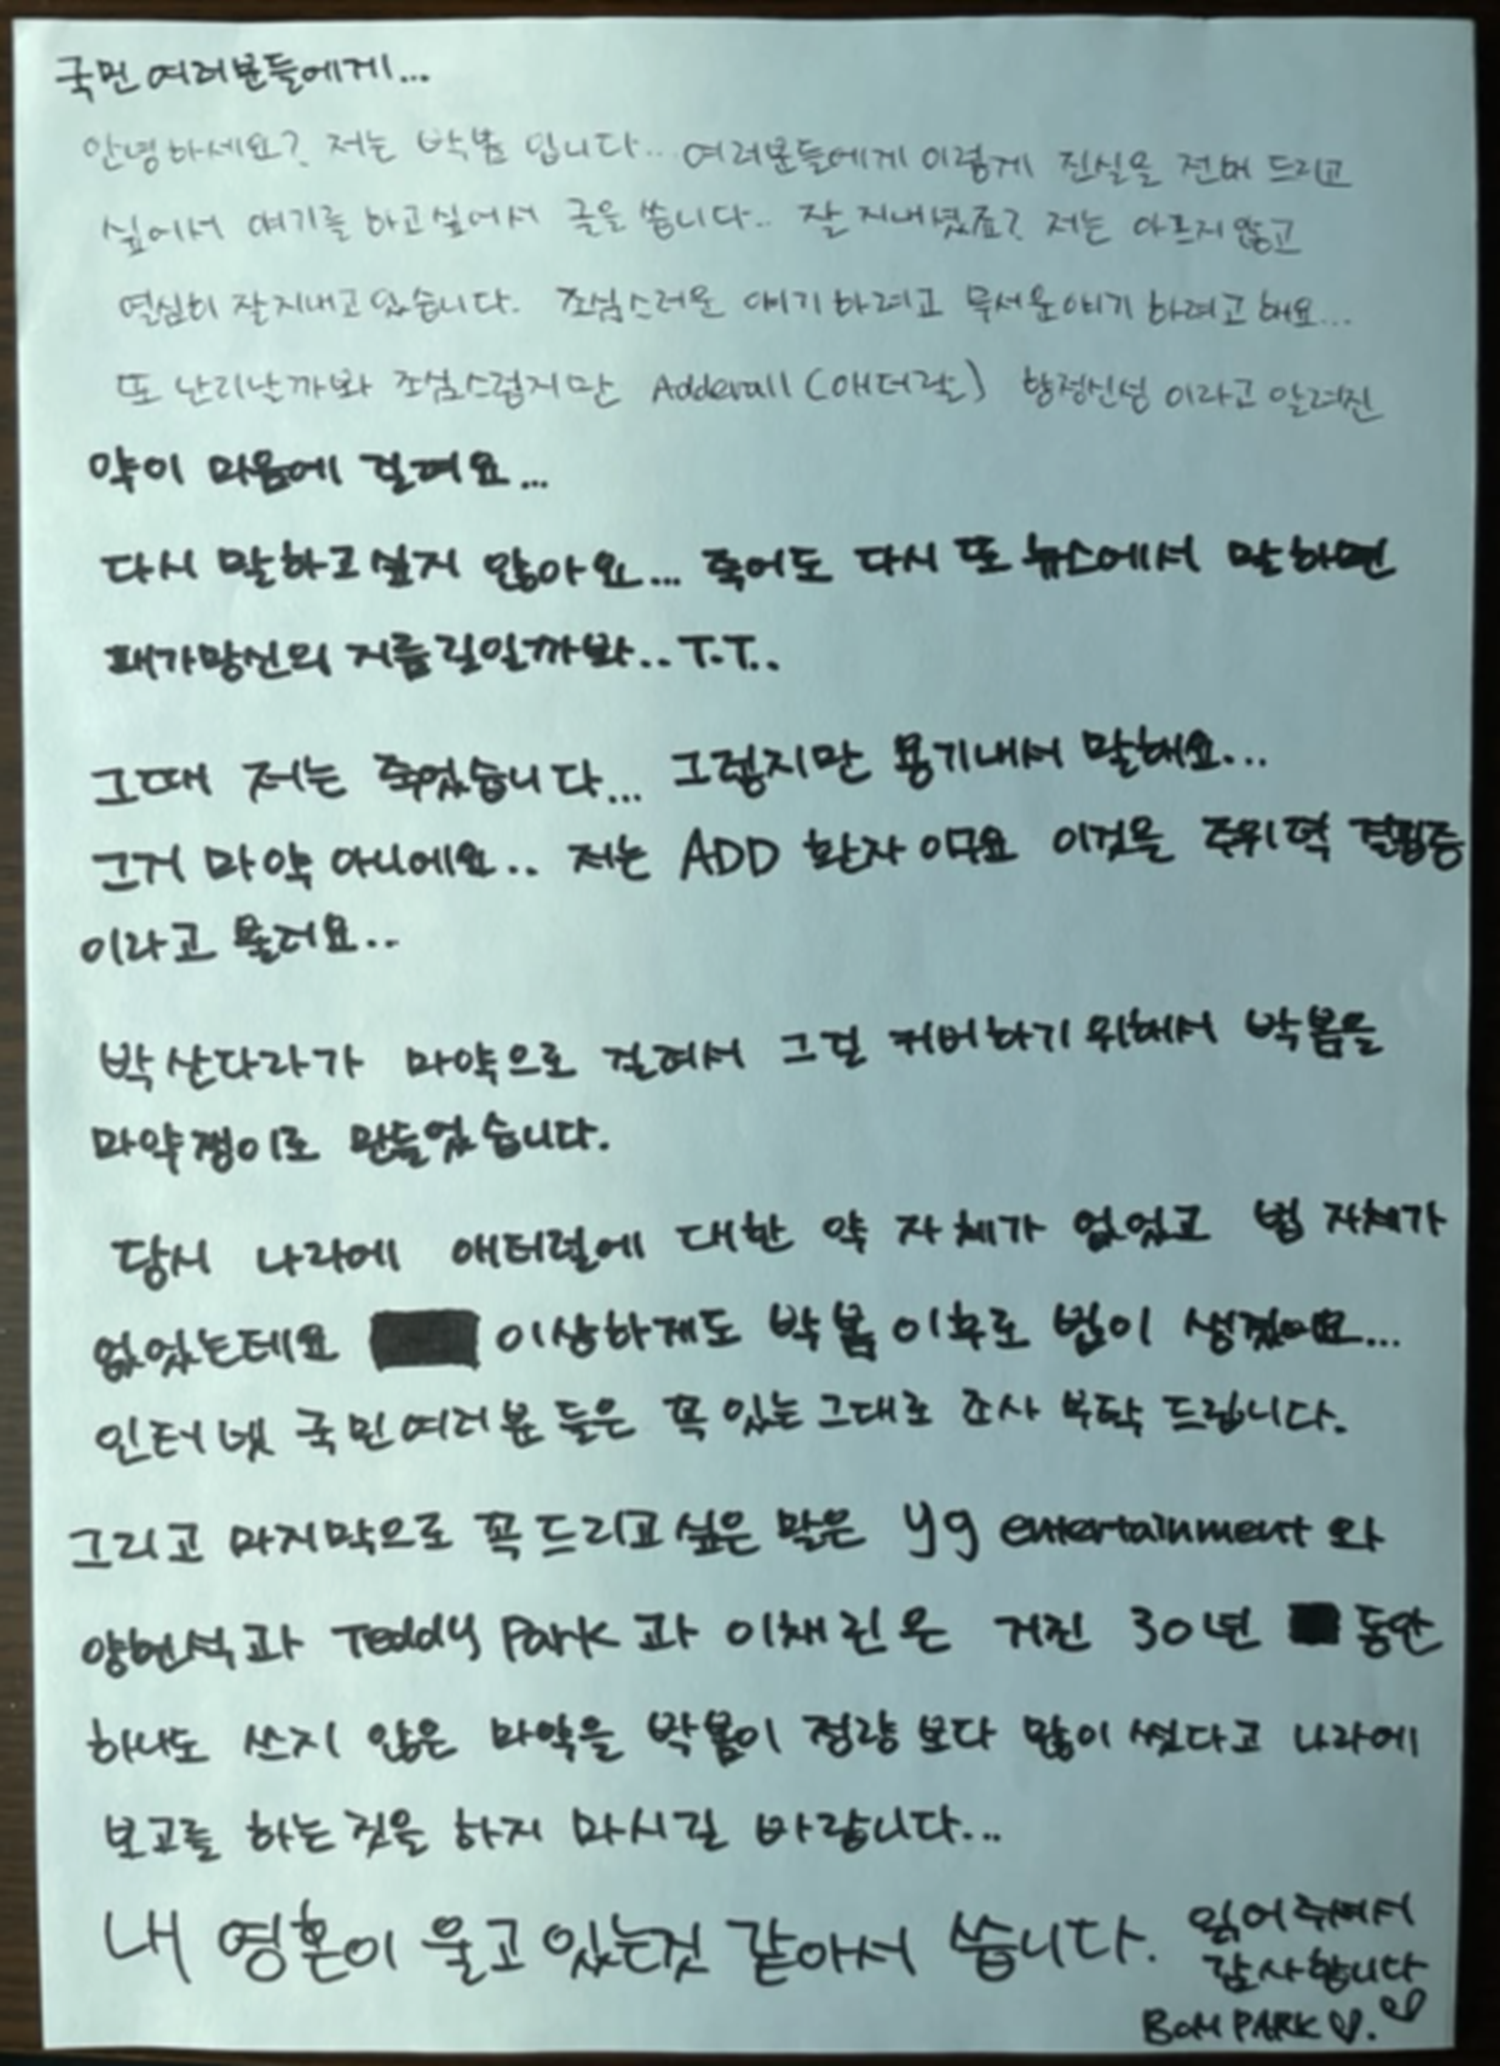 국민여러분들에게...
안녕하세요? 저는 박봄 입니다... 여러분들에게 이렇게 진실을 전해 드리고
싶어서 얘기를 하고싶어서 글을 씁니다.. 잘 지내셨죠? 저는 아프지 않고
열심히 잘지내고 있습니다. 조심스러운 얘기하려고 무서운얘기 하려고 해요...
또 난리날까봐 조심스럽지만 Adderall (애더랄) 향정신성 이라고 알려진
약이 마음에 걸려요...
다시 말하고싶지 않아요... 죽어도 다시 또 뉴스에서 말하면
패가망신의 지름길일까봐.. T.T..
그때 저는 죽었습니다... 그렇지만 용기내서 말해요...
그거 마약 아니에요.. 저는 ADD 환자이구요 이것을 주위력 결핍증
이라고 불러요..
박산다라가 마약으로 걸려서 그걸 커버하기 위해서 박봄을
마약쟁이로 만들었습니다.
당시 나라에 애터럴에 대한 약 자체가 없었고 법 자체가
없었는데요 이상하게도 박봄이후로 법이 생겼어요...
인터넷 국민여러분 들은 꼭 있는그대로 조사 부탁 드립니다.
그리고 마지막으로 꼭드리고싶은 말은 yg entertainment 와
양현석과 Teddy Park 과 이채린은 거진 30년 동안
하나도 쓰지 않은 마약을 박봄이 정량 보다 많이 썼다고 나라에
보고를 하는것을 하지 마시길 바랍니다...
내 영혼이 울고있는것 같아서 씁니다.
읽어주셔서
감사합니다
BOM PARK